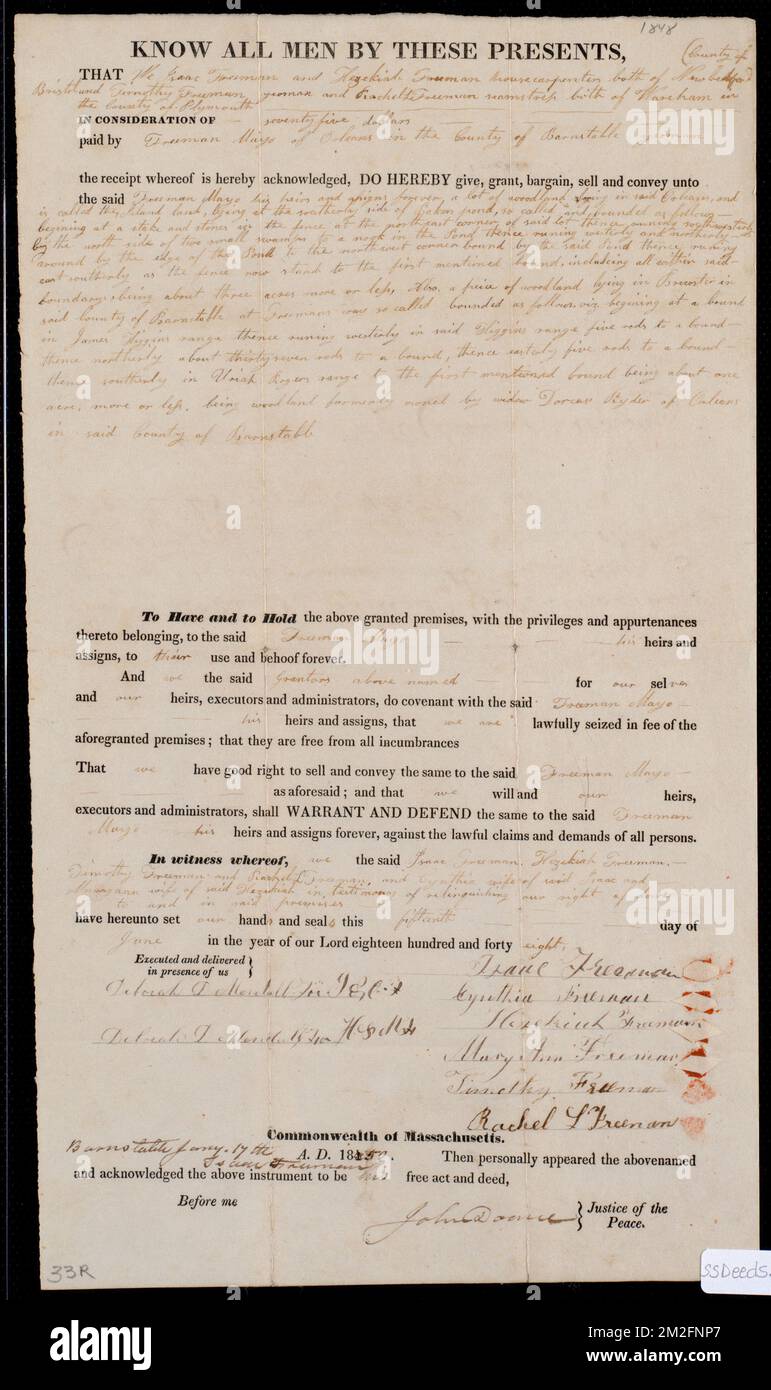 1848
KNOW ALL MEN BY THESE PRESENTS,
(County of
THAT We Isaac Freeman and Hezekiah Freeman housecarpenters both of New bedford
Bristol and Timothy Freeman yeoman and Rachel L Freeman seamstress both of Wareham in
the County of Plymouth
IN CONSIDERATION OF seventy five dollars
paid by Freeman Mayo of Orleans in the County of Barnstable yeoman
the receipt whereof is hereby acknowledged, DO HEREBY give, grant, bargain, sell and convey unto
the said Freeman Mayo his heirs and assigns forever, a lot of woodland lying in said Orleans, and
is called the Island land, lying at the southerly side of pond, so called and bounded as follows
begining at a stake and stones in the fence at the north east corner of said lot thence runing southwesterly
by the north side of two small swamps to a in the Pond thence runing westerly and northerly
round by the edge of the Pond to the northeast corner bound by the said Pond thence runing
east southerly as the fence now stands to the first mentioned bound, including all within said
boundary; being about three acres more or less, Also, a piece of woodland lying in Brewster in
said County of Barnstable at Freemans so called bounded as follows. viz. begining at a bound
in James Higgins range thence runing westerly in said Higgins range five rods to a bound
thence northerly about thirty seven rods to a bound, thence easterly five rods to a bound
thence southerly in Uriah Rogers range to the first mentioned bound being about one
acre, more or less, being woodland formerly owned by widow Dorcas Ryder of Orleans
in said County of Barnstable
To Have and to Hold the above granted premises, with the privileges and appurtenances
thereto belonging, to the said Freeman Mayo his heirs and
assigns, to their use and behoof forever.
And we the said Grantors above named for our selves
and our heirs, executors and administrators, do covenant with the said Freeman Mayo
his heirs and assigns, that we are lawfully seized in fee of the
aforegranted premises; that they are free from all incumbrances
That we have good right to sell and convey the same to the said Freeman Mayo
as aforesaid; and that we will and our heirs,
executors and administrators, shall WARRANT AND DEFEND the same to the said Freeman
Mayo his heirs and assigns forever, against the lawful claims and demands of all persons.
In witness whereof, we the said Isaac Freeman, Hezekiah Freeman,
Timothy Freeman and Rachel L Freeman, and Cynthia wife of said Isaac and
Maryann wife of said Hezekiah in testimony of relinquishing our right of dower
to and in said premises
have hereunto set our hands and seals this fifteenth day of
June in the year of our Lord eighteen hundred and forty eight.
Executed and delivered
in presence of us
Isaac Freeman
Deborah D
Cynthia Freeman
Hezekiah Freeman
Deborah D
Mary Ann Freeman
Timothy Freeman
Rachel L Freeman
Commonwealth of Massachusetts.
Barnstable Jany. 17th A. D. 1850. Then personally appeared the abovenamed
Isaac Freeman
and acknowledged the above instrument to be his free act and deed,
Before me
John Doane
Justice of the
Peace.
33R
SSDeeds.
alamy
Image ID: 2M2FNP7
www.alamy.com